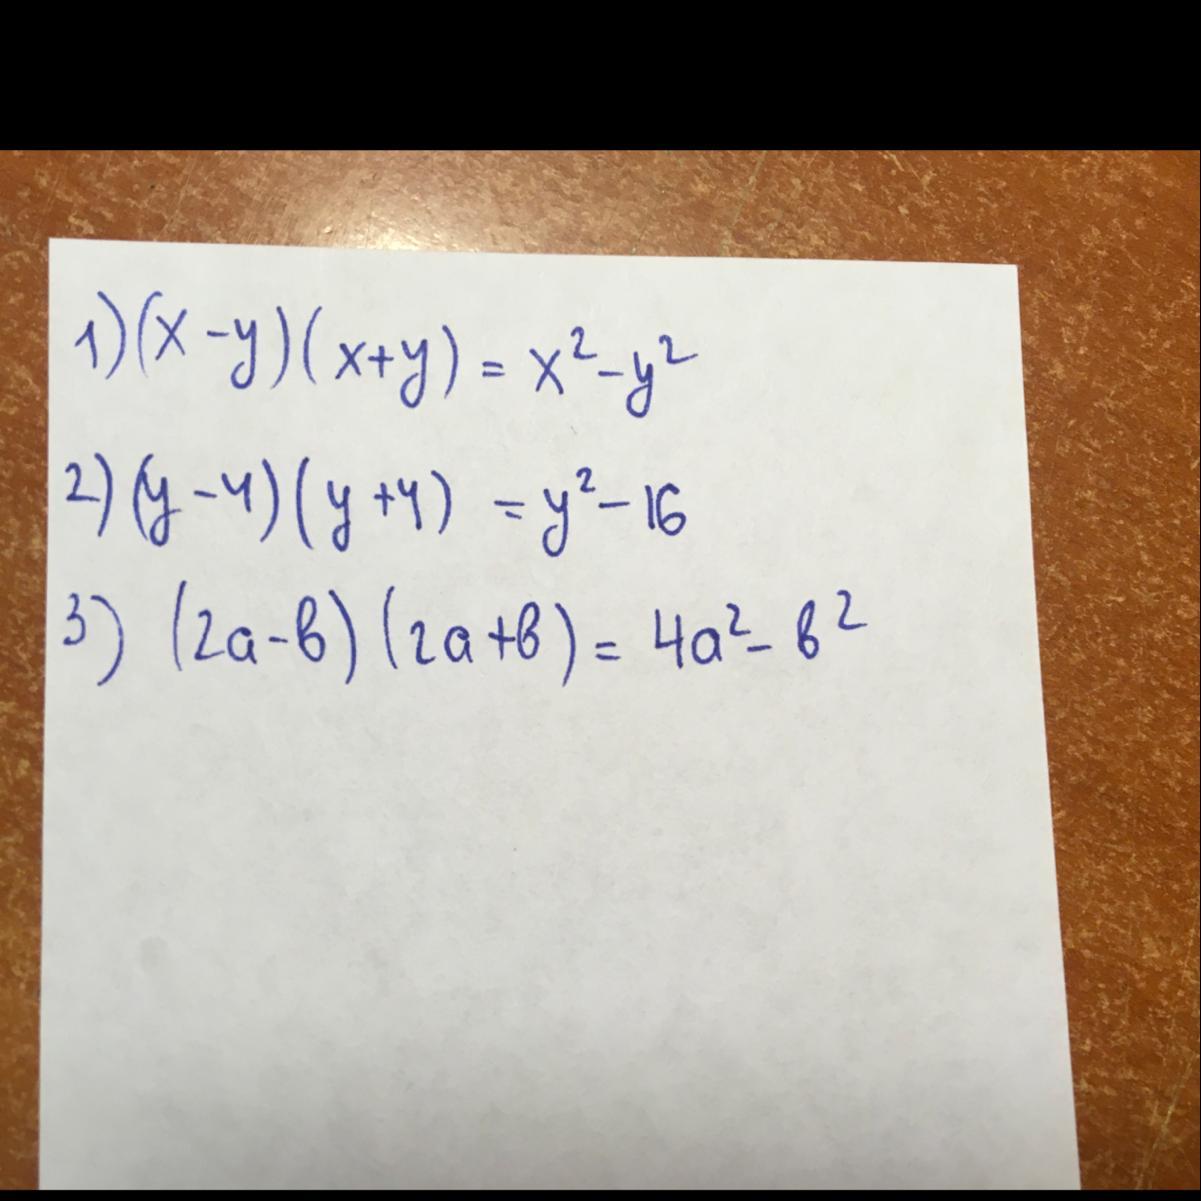 1) (x - y) ( x+y) = x² - y²
2) (y - 4) ( y + 4) = y² - 16
3) (2a - b) (2a + b) = 4a² - b²